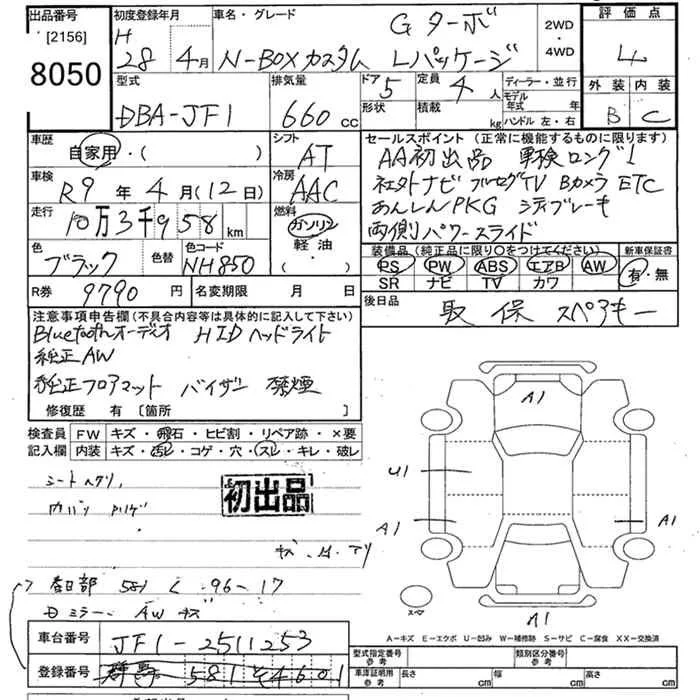 出品番号
[2156]
8050
初度登録年月
H
28 年 4月
車名・グレード
Gターボ
N-BOXカスタム Lパッケージ
2WD
・
4WD
評価点
4
外装 内装
B C
型式
DBA-JF1
排気量
660 cc
ドア 5
定員 4 人
形状
積載 kg
ディーラー・並行
モデル年式 年
ハンドル 左・右
車歴
自家用・( )
シフト
AT
車検
R9 年 4月(12日)
冷房
AAC
走行
10万3千958 km
燃料
ガソリン
軽油
・( )
色
ブラック
色替
色コード
NH850
R券 9790 円
名変期限 月 日
セールスポイント (正常に機能するものに限ります)
AA初出品 車検ロング!
社外ナビ フルセグTV Bカメラ ETC
あんしんPKG シティブレーキ
両側パワースライド
装備品(純正品に限り○をつけてください)
PS PW ABS エアB AW
SR ナビ TV カワ
新車保証書
有・無
後日品
取 保 スペアキー
注意事項申告欄(不具合内容等は具体的に記入して下さい)
Bluetoothオーデイオ HIDヘッドライト
純正AW
純正フロアマット バイザー 禁煙
修復歴 有 [箇所 ]
検査員
記入欄
FW キズ・飛石・ヒビ割・リペア跡・×要
内装 キズ・汚レ・コゲ・穴・スレ・キレ・破レ
シートヘタリ
初出品
春日部 581 く 96-17
ミラー AWキズ
A1
U1
A1
A1
A1
スペア
A-キズ E-エクボ U-凹み W-補修跡 S-サビ C-腐食 XX-交換済
車台番号 JF1-2511253
登録番号 群馬 581 そ 4601
型式指定番号
参考
類別区分番号
参考
車庫証明用
参考
長さ cm
幅 cm
高さ cm